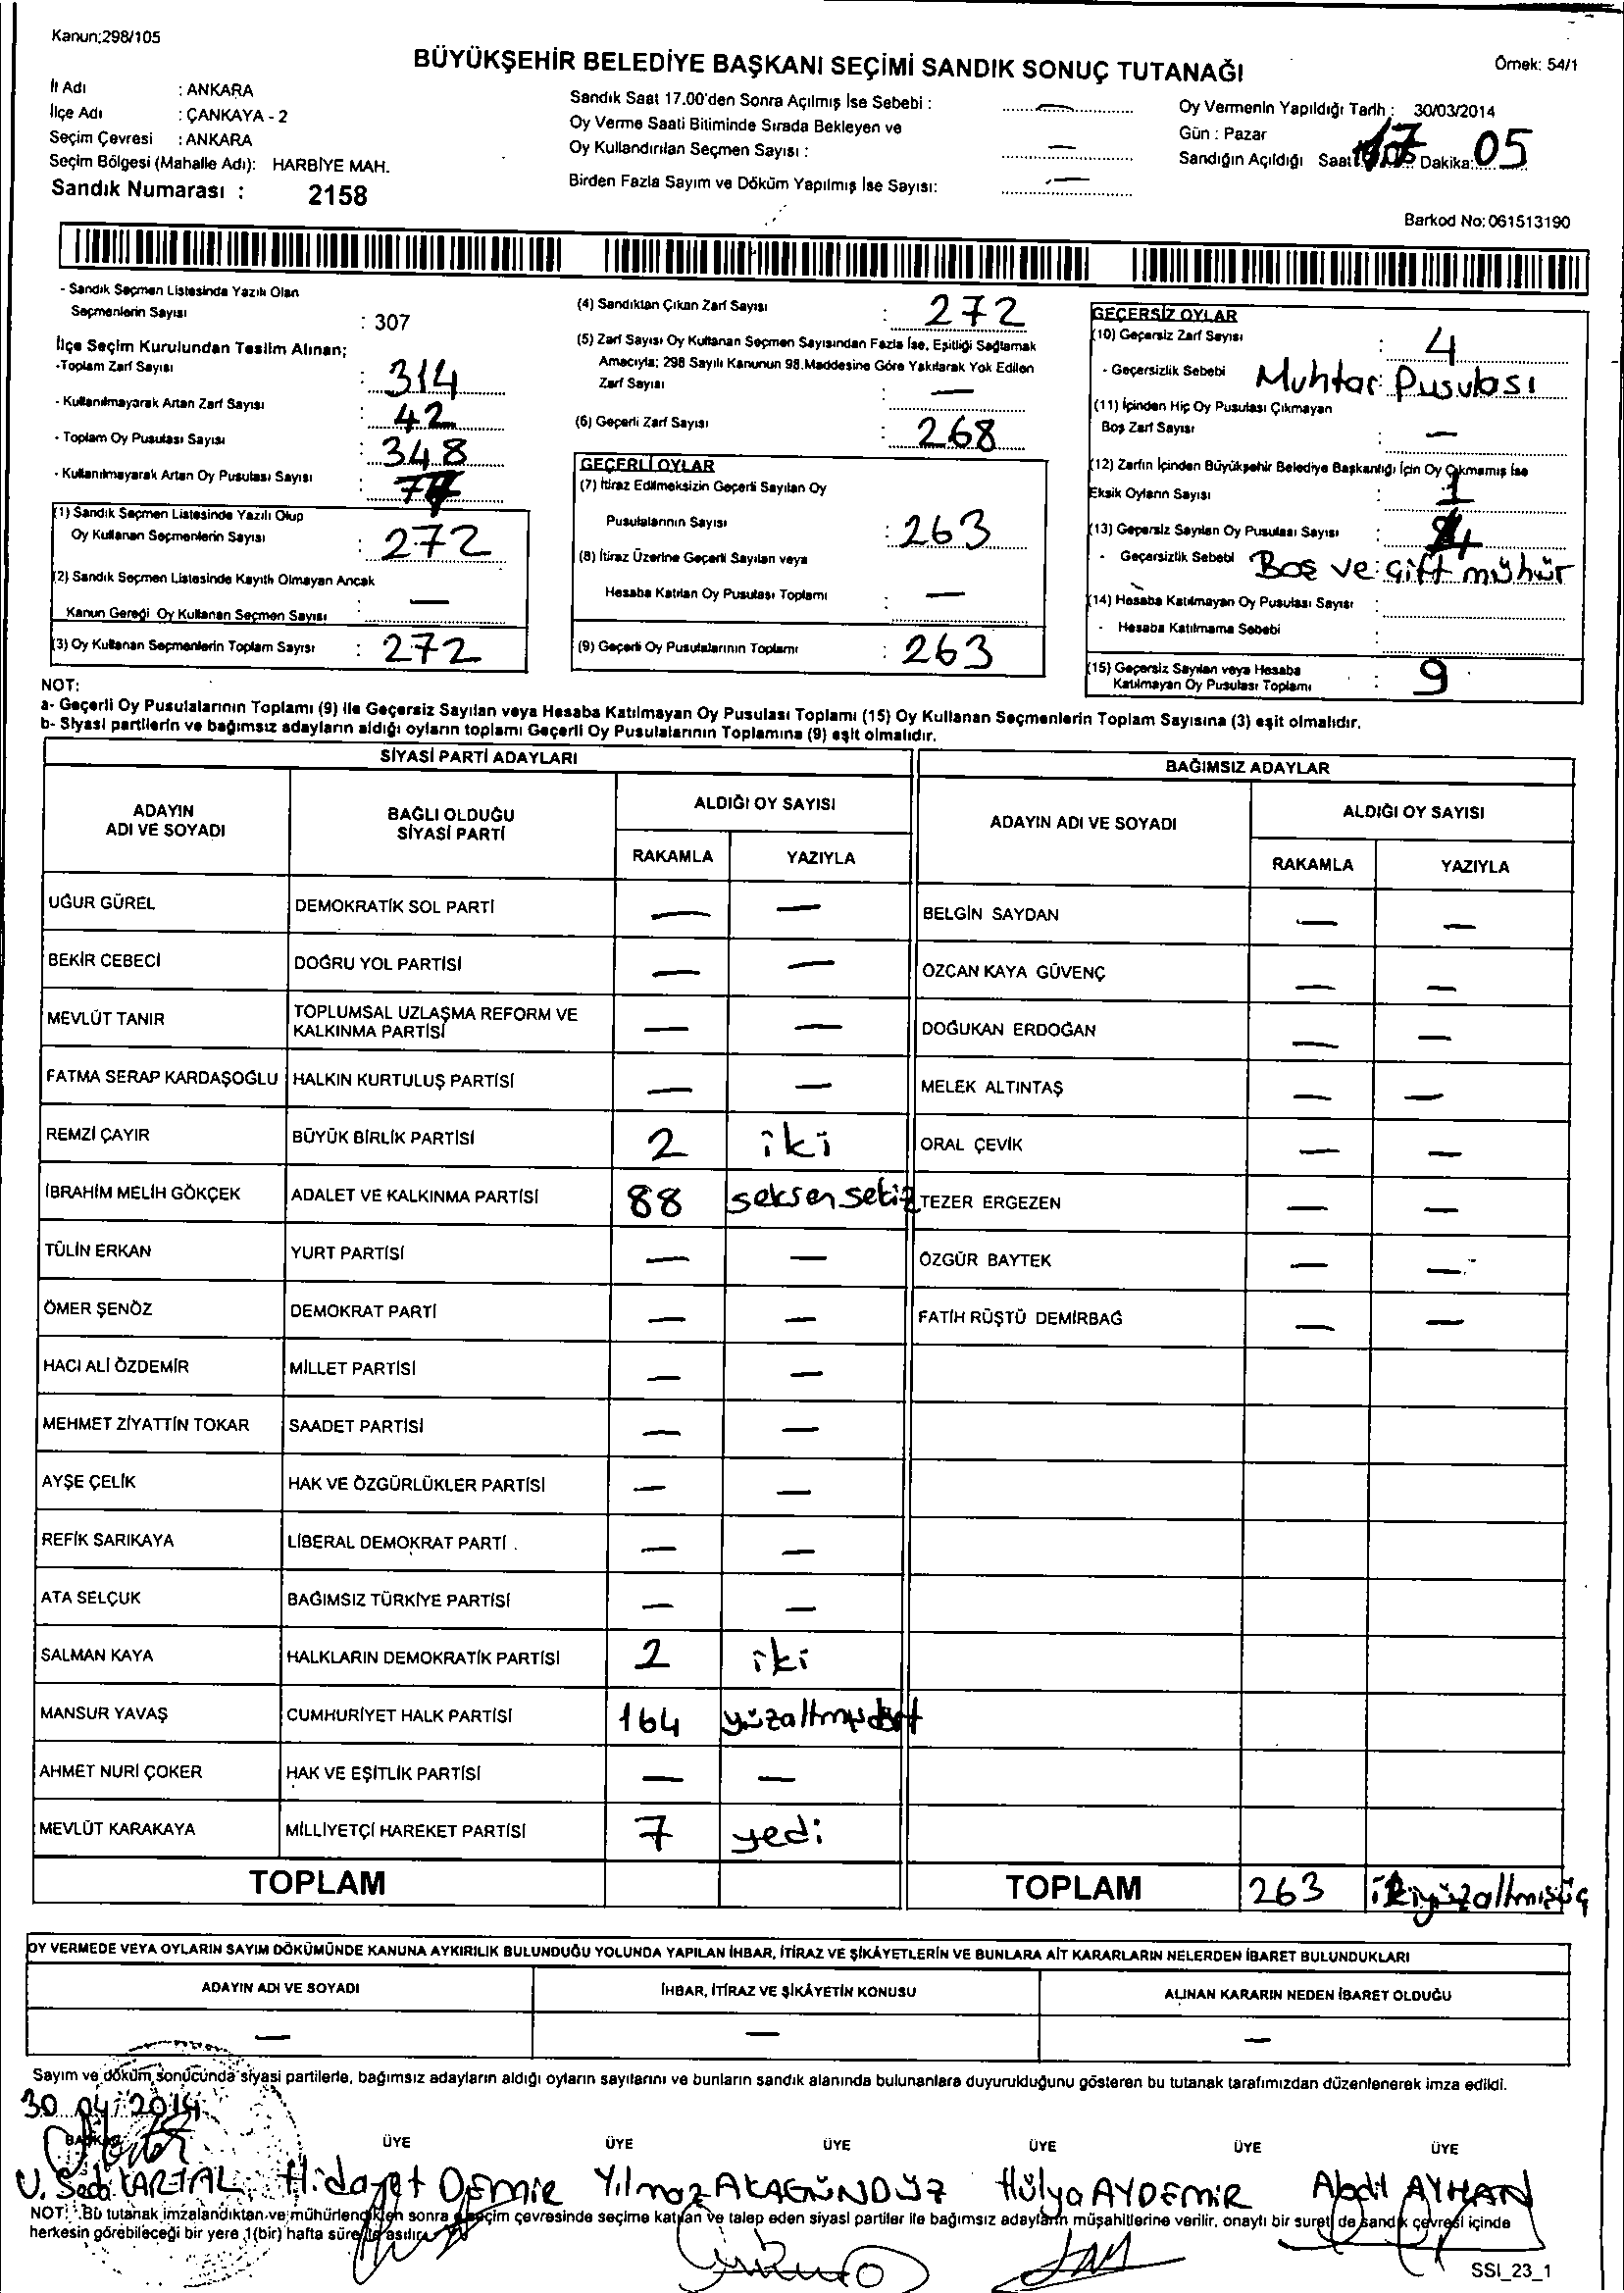 Kanun;298/105
BÜYÜKŞEHİR BELEDİYE BAŞKANI SEÇİMİ SANDIK SONUÇ TUTANAĞI
Örnek: 54/1
İl Adı : ANKARA
İlçe Adı : ÇANKAYA - 2
Seçim Çevresi : ANKARA
Seçim Bölgesi (Mahalle Adı): HARBİYE MAH.
Sandık Numarası : 2158
Sandık Saat 17.00'den Sonra Açılmış İse Sebebi : —
Oy Verme Saati Bitiminde Sırada Bekleyen ve
Oy Kullandırılan Seçmen Sayısı : —
Birden Fazla Sayım ve Döküm Yapılmış İse Sayısı: —
Oy Vermenin Yapıldığı Tarih : 30/03/2014
Gün : Pazar
Sandığın Açıldığı Saat 17 Dakika: 05
Barkod No: 061513190
- Sandık Seçmen Listesinde Yazılı Olan
Seçmenlerin Sayısı : 307
İlçe Seçim Kurulundan Teslim Alınan;
-Toplam Zarf Sayısı : 314
- Kullanılmayarak Artan Zarf Sayısı : 42
- Toplam Oy Pusulası Sayısı : 348
- Kullanılmayarak Artan Oy Pusulası Sayısı :
(1) Sandık Seçmen Listesinde Yazılı Olup
Oy Kullanan Seçmenlerin Sayısı : 272
(2) Sandık Seçmen Listesinde Kayıtlı Olmayan Ancak
Kanun Gereği Oy Kullanan Seçmen Sayısı : —
(3) Oy Kullanan Seçmenlerin Toplam Sayısı : 272
(4) Sandıktan Çıkan Zarf Sayısı : 272
(5) Zarf Sayısı Oy Kullanan Seçmen Sayısından Fazla İse, Eşitliği Sağlamak
Amacıyla; 298 Sayılı Kanunun 98.Maddesine Göre Yakılarak Yok Edilen
Zarf Sayısı : —
(6) Geçerli Zarf Sayısı : 268
GEÇERLİ OYLAR
(7) İtiraz Edilmeksizin Geçerli Sayılan Oy
Pusulalarının Sayısı : 263
(8) İtiraz Üzerine Geçerli Sayılan veya
Hesaba Katılan Oy Pusulası Toplamı : —
(9) Geçerli Oy Pusulalarının Toplamı : 263
GEÇERSİZ OYLAR
(10) Geçersiz Zarf Sayısı : 4
- Geçersizlik Sebebi : Muhtar Pusulası
(11) İçinden Hiç Oy Pusulası Çıkmayan
Boş Zarf Sayısı : —
(12) Zarfın İçinden Büyükşehir Belediye Başkanlığı İçin Oy Çıkmamış İse
Eksik Oyların Sayısı : 1
(13) Geçersiz Sayılan Oy Pusulası Sayısı : 4
- Geçersizlik Sebebi : Boş ve çift mühür
(14) Hesaba Katılmayan Oy Pusulası Sayısı :
- Hesaba Katılmama Sebebi :
(15) Geçersiz Sayılan veya Hesaba
Katılmayan Oy Pusulası Toplamı : 9
NOT:
a- Geçerli Oy Pusulalarının Toplamı (9) ile Geçersiz Sayılan veya Hesaba Katılmayan Oy Pusulası Toplamı (15) Oy Kullanan Seçmenlerin Toplam Sayısına (3) eşit olmalıdır.
b- Siyasi partilerin ve bağımsız adayların aldığı oyların toplamı Geçerli Oy Pusulalarının Toplamına (9) eşit olmalıdır.
SİYASİ PARTİ ADAYLARI
ADAYIN ADI VE SOYADI
BAĞLI OLDUĞU SİYASİ PARTİ
ALDIĞI OY SAYISI
RAKAMLA YAZIYLA
UĞUR GÜREL DEMOKRATİK SOL PARTİ — —
BEKİR CEBECİ DOĞRU YOL PARTİSİ — —
MEVLÜT TANIR TOPLUMSAL UZLAŞMA REFORM VE KALKINMA PARTİSİ — —
FATMA SERAP KARDAŞOĞLU HALKIN KURTULUŞ PARTİSİ — —
REMZİ ÇAYIR BÜYÜK BİRLİK PARTİSİ 2 iki
İBRAHİM MELİH GÖKÇEK ADALET VE KALKINMA PARTİSİ 88 seksensekiz
TÜLİN ERKAN YURT PARTİSİ — —
ÖMER ŞENÖZ DEMOKRAT PARTİ — —
HACI ALİ ÖZDEMİR MİLLET PARTİSİ — —
MEHMET ZİYATTİN TOKAR SAADET PARTİSİ — —
AYŞE ÇELİK HAK VE ÖZGÜRLÜKLER PARTİSİ — —
REFİK SARIKAYA LİBERAL DEMOKRAT PARTİ — —
ATA SELÇUK BAĞIMSIZ TÜRKİYE PARTİSİ — —
SALMAN KAYA HALKLARIN DEMOKRATİK PARTİSİ 2 iki
MANSUR YAVAŞ CUMHURİYET HALK PARTİSİ 164 yüzaltmışdört
AHMET NURİ ÇOKER HAK VE EŞİTLİK PARTİSİ — —
MEVLÜT KARAKAYA MİLLİYETÇİ HAREKET PARTİSİ 7 yedi
TOPLAM
BAĞIMSIZ ADAYLAR
ADAYIN ADI VE SOYADI
ALDIĞI OY SAYISI
RAKAMLA YAZIYLA
BELGİN SAYDAN — —
ÖZCAN KAYA GÜVENÇ — —
DOĞUKAN ERDOĞAN — —
MELEK ALTINTAŞ — —
ORAL ÇEVİK — —
TEZER ERGEZEN — —
ÖZGÜR BAYTEK — —
FATİH RÜŞTÜ DEMİRBAĞ — —
TOPLAM 263 ikiyüzaltmışüç
OY VERMEDE VEYA OYLARIN SAYIM DÖKÜMÜNDE KANUNA AYKIRILIK BULUNDUĞU YOLUNDA YAPILAN İHBAR, İTİRAZ VE ŞİKÂYETLERİN VE BUNLARA AİT KARARLARIN NELERDEN İBARET BULUNDUKLARI
ADAYIN ADI VE SOYADI İHBAR, İTİRAZ VE ŞİKÂYETİN KONUSU ALINAN KARARIN NEDEN İBARET OLDUĞU
— — —
Sayım ve döküm sonucunda siyasi partilerle, bağımsız adayların aldığı oyların sayılarını ve bunların sandık alanında bulunanlara duyurulduğunu gösteren bu tutanak tarafımızdan düzenlenerek imza edildi.
30 04 2014
BAŞKAN ÜYE ÜYE ÜYE ÜYE ÜYE ÜYE
U. Seda KARTAL Hidayet DEMİR Yılmaz AKAGÜNDÜZ Hülya AYDEMİR Abdil AYHAN
NOT: Bu tutanak imzalandıktan ve mühürlendikten sonra seçim çevresinde seçime katılan ve talep eden siyasi partiler ile bağımsız adayların müşahitlerine verilir, onaylı bir sureti de sandık çevresi içinde
herkesin görebileceği bir yere 1(bir) hafta süre ile asılır.
SSI_23_1